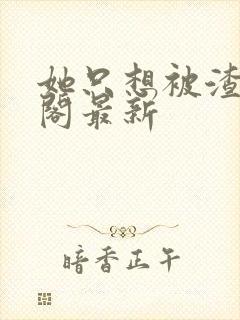 她只想被渣
阁最新
暗香正午